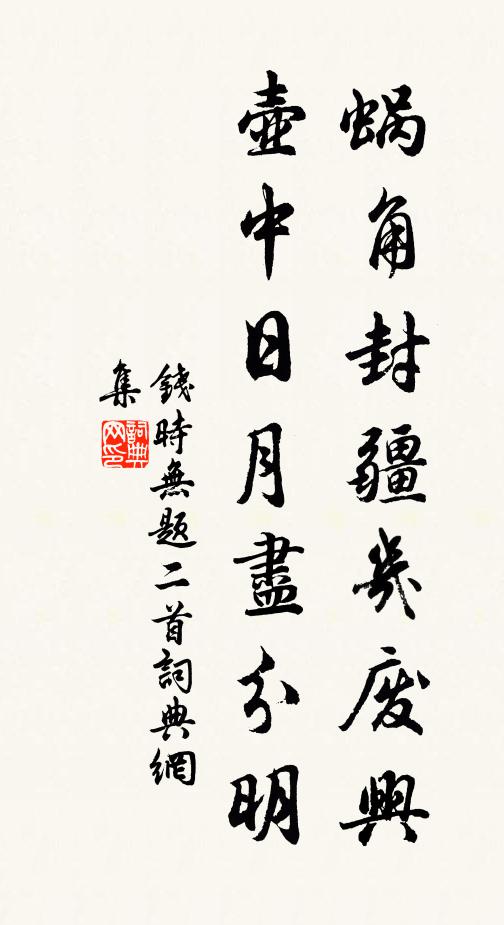 蝸角封疆幾廢興
壺中日月盡分明
錢時無題二首詞典網
集
詞典
网印